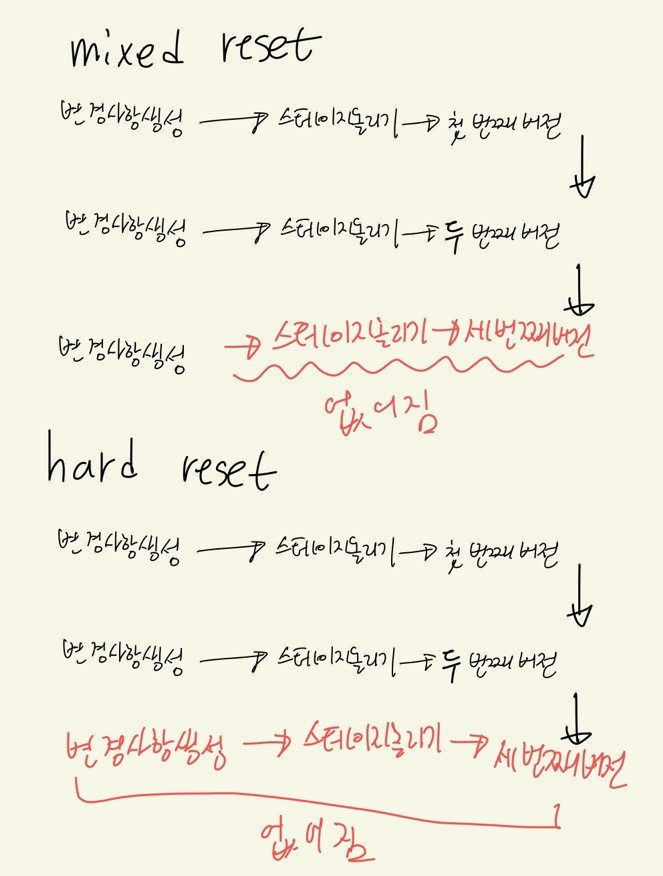 mixed reset
변경사항생성 → 스테이지올리기 → 첫 번째 버전
변경사항생성 → 스테이지올리기 → 두 번째 버전
변경사항생성 → 스테이지올리기 → 세번째버전
없어짐
hard reset
변경사항생성 → 스테이지올리기 → 첫 번째 버전
변경사항생성 → 스테이지올리기 → 두 번째 버전
변경사항생성 → 스테이지올리기 → 세번째버전
없어짐